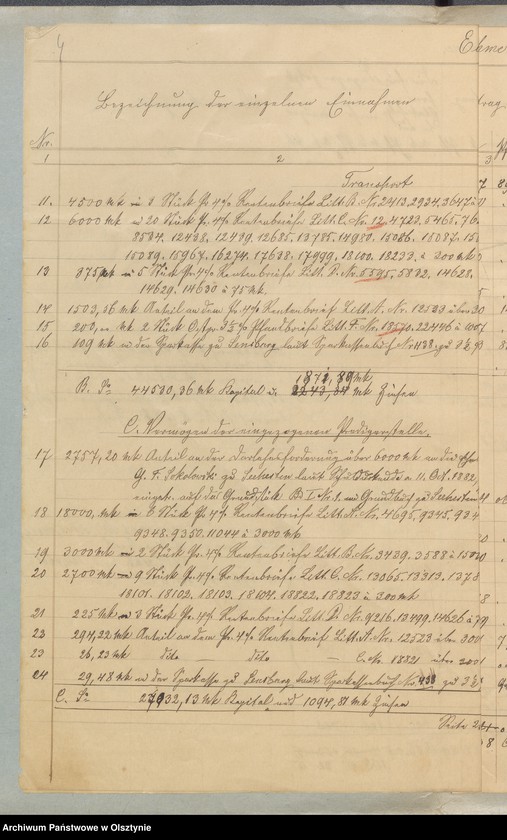 4 Einne
Bezeichnung der einzelnen Einnahmen trag
Nr.
1 2 3
Transport 7
11. 4500 mk in 3 Stück Pr. 4% Rentenbriefe Litt. B. Nr. 2413, 2934, 3647 à
12 6000 mk in 20 Stück Pr. 4% Rentenbriefe Litt. C. Nr. 12, 4723, 5465, 76
8534. 12438. 12439. 12685. 13785. 14980. 15086. 15087. 15
15089. 15967. 16274. 17638. 17999. 18100. 18233 à 300 mk
13 375 mk in 5 Stück Pr. 4% Rentenbriefe Litt. D. Nr. 5595. 5832. 14628.
14629. 14630 à 75 mk.
14 1503,56 mk Anteil an dem Pr. 4% Rentenbrief Litt. A. Nr. 12523 über 30
15 200, mk 2 Stück O. Pr. 3½% Pfandbriefe Litt. F. Nr. 18570. 22446 à 100
16 109 mk in der Sparkasse zu Sensburg laut Sparkassenbuch Nr. 438 zu 3
1871, 89 mk
B. Sa 44530,36 mk Kapital u. 2243,34 mk Zinsen
C. Vermögen der eingezogenen Predigerstelle.
17 2757,20 mk Anteil an der Darlehnsforderung über 6000 mk an die
G. F. Sokolowski zu Seehesten laut Schuldurkunde v. 11. Oct. 1882,
einget. auf das Grundstück Bd I. Nr. 1. im Grundbuch zu Seehesten
18 18000, mk in 6 Stück Pr. 4% Rentenbriefe Litt. A. Nr. 4695. 9345. 934
9348. 9350. 11044 à 3000 mk
19 3000 mk in 2 Stück Pr. 4% Rentenbriefe Litt. B. Nr. 3439. 3588 à 1500
20 2700 mk in 9 Stück Pr. 4% Rentenbriefe Litt. C. Nr. 13065. 13313. 1378
18101. 18102. 18103. 18104. 18822. 18823 à 300 mk 8
21 225 mk in 3 Stück Pr. 4% Rentenbriefe Litt. D. Nr. 9216. 13499. 14626 à
22 294,22 mk Anteil an dem Pr. 4% Rentenbrief Litt. A. Nr. 12523 über 300
23 26,23 mk dito dito — C. Nr. 18821 über 300
24 29,48 mk in der Sparkasse zu Sensburg laut Sparkassenbuch Nr. 438 zu 3
C. Sa 27032,13 mk Kapital und 1094,81 mk Zinsen
Seite
Archiwum Państwowe w Olsztynie